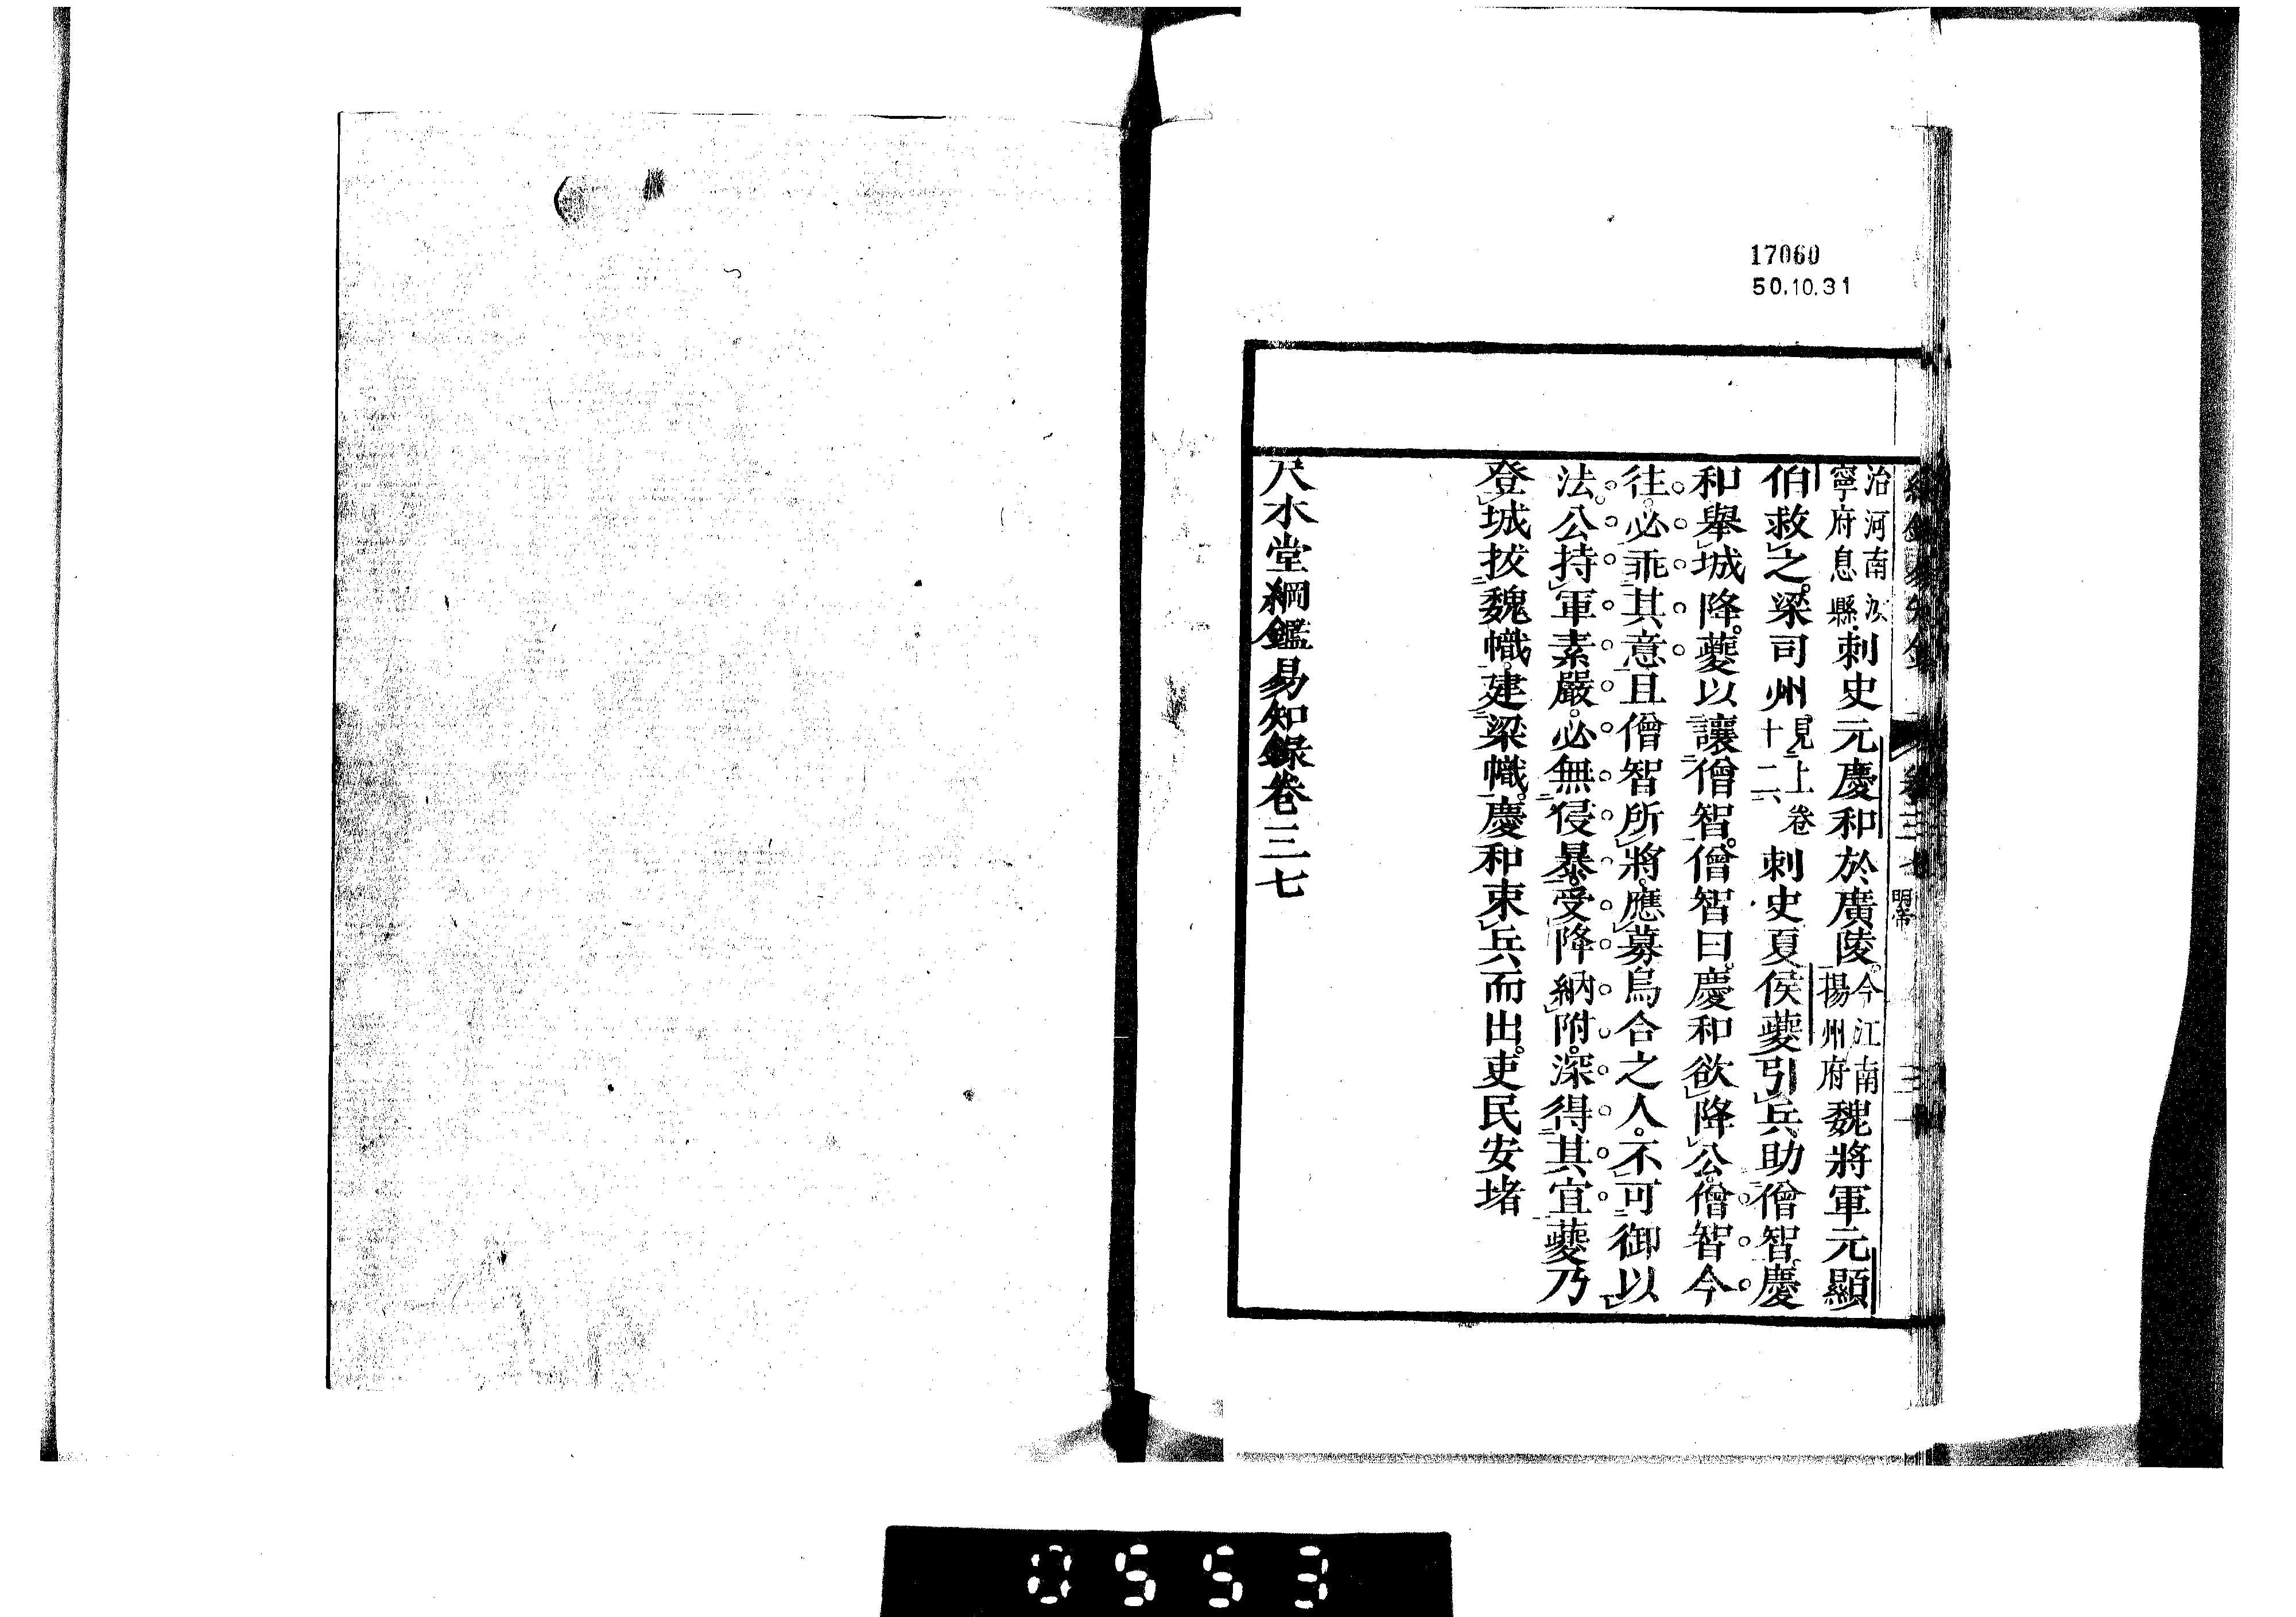 17060
50.10.31
治河南汝
寧府息縣刺史元慶和於廣陵今江南
揚州府魏將軍元顯
伯救之梁司州見上卷
十二刺史夏侯夔引兵助僧智慶
和舉城降夔以讓僧智僧智曰慶和欲降公僧智今
往必乖其意且僧智所將應募烏合之人不可御以
法公持軍素嚴必無侵暴受降納附深得其宜夔乃
登城拔魏幟建梁幟慶和束兵而出吏民安堵
尺木堂綱鑑易知錄卷三七
卷三七
明帝
0553